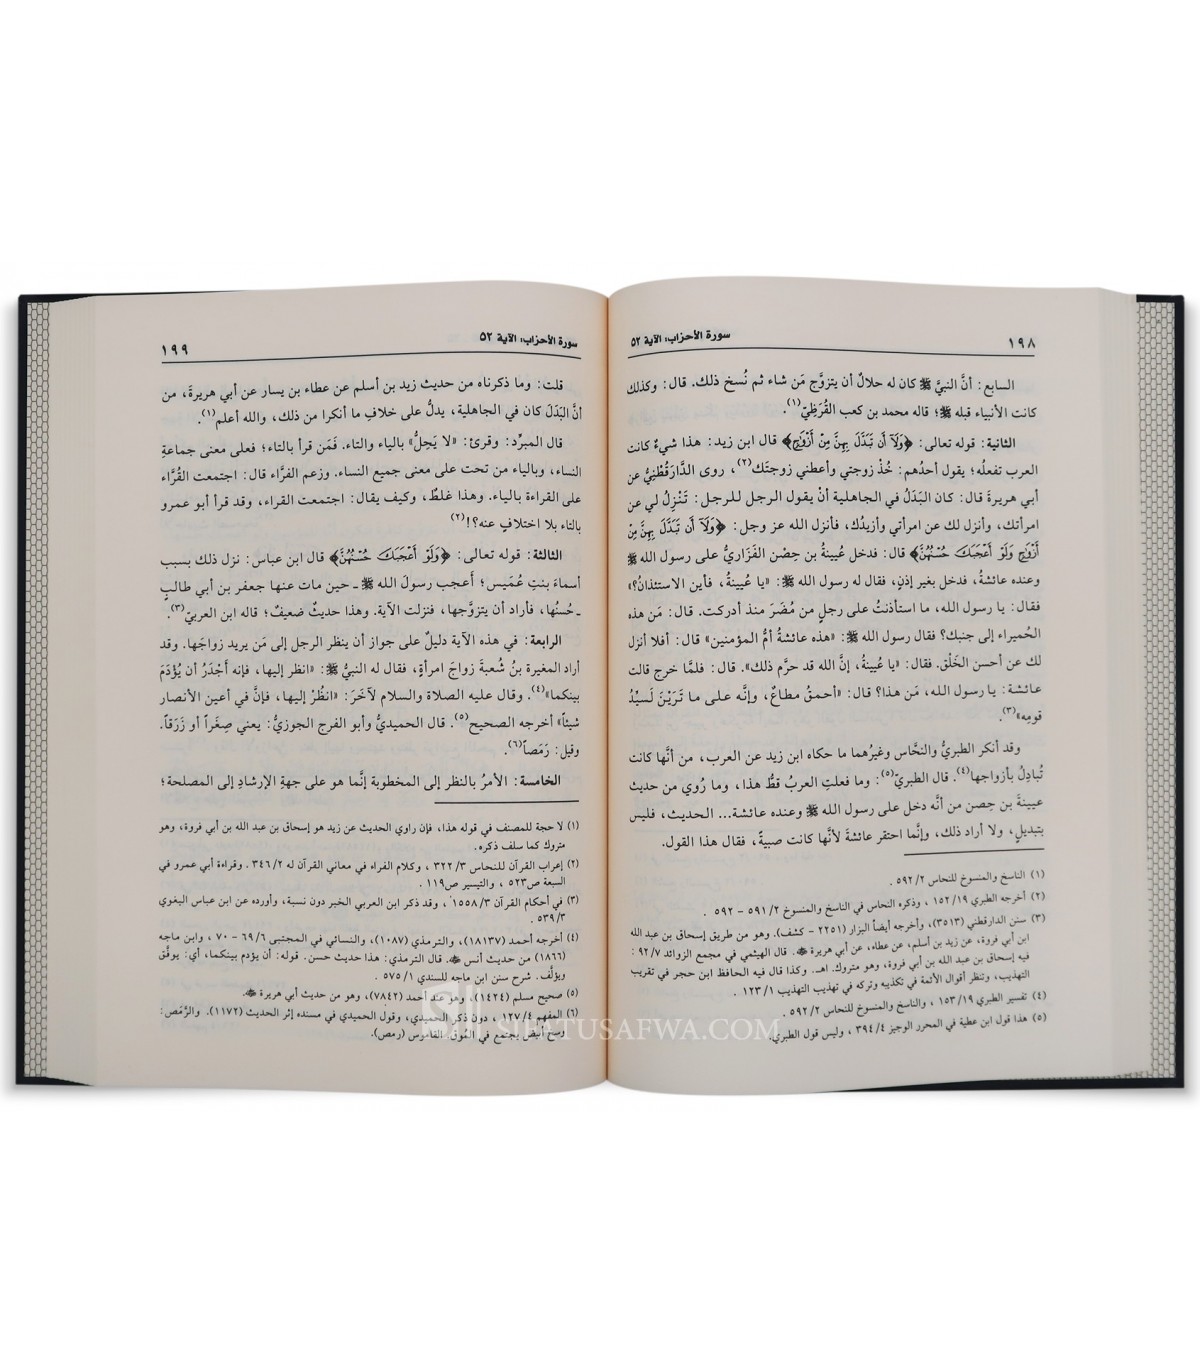 ١٩٨
سورة الأحزاب: الآية ٥٢
السابع: أنَّ النبيَّ ﷺ كان له حلالٌ أن يتزوَّج مَن شاء ثم نُسخ ذلك. قال: وكذلك
كانت الأنبياء قبله ﷺ؛ قاله محمد بن كعب القُرَظِيّ(١).
الثانية: قوله تعالى: ﴿وَلَآ أَن تَبَدَّلَ بِهِنَّ مِنْ أَزْوَٰجٍ﴾ قال ابن زيد: هذا شيءٌ كانت
العرب تفعلُه؛ يقول أحدُهم: خُذْ زوجتي وأعطني زوجتَك(٢)، روى الدَّارَقُطْنِيُّ عن
أبي هريرةَ قال: كان البَدَلُ في الجاهلية أنْ يقول الرجل للرجل: تَنْزِلُ لي عن
امرأتك، وأنزل لك عن امرأتي وأزيدُك، فأنزل الله عز وجل: ﴿وَلَآ أَن تَبَدَّلَ بِهِنَّ مِنْ
أَزْوَٰجٍ وَلَوْ أَعْجَبَكَ حُسْنُهُنَّ﴾ قال: فدخل عُيينةُ بن حِصْن الفَزَاريُّ على رسول الله ﷺ
وعنده عائشةُ، فدخل بغير إذن، فقال له رسول الله ﷺ: «يا عُيينةُ، فأين الاستئذانُ؟»
فقال: يا رسول الله، ما استأذنتُ على رجلٍ من مُضَرَ منذ أدركت. قال: مَن هذه
الحُميراء إلى جنبك؟ فقال رسول الله ﷺ: «هذه عائشةُ أمُّ المؤمنين» قال: أفلا أنزل
لك عن أحسن الخَلْق. فقال: «يا عُيينةُ، إنَّ الله قد حرَّم ذلك». قال: فلمَّا خرج قالت
عائشة: يا رسول الله، مَن هذا؟ قال: «أحمقُ مطاعٌ، وإنَّه على ما تَرَيْنَ لَسيِّدُ
قومِه»(٣).
وقد أنكر الطبريُّ والنحَّاس وغيرُهما ما حكاه ابن زيد عن العرب، من أنَّها كانت
تُبادِلُ بأزواجها(٤). قال الطبريّ(٥): وما فعلتِ العربُ قطُّ هذا، وما رُوي من حديث
عيينةَ بن حِصن من أنَّه دخل على رسول الله ﷺ وعنده عائشة... الحديث، فليس
بتبديلٍ، ولا أراد ذلك، وإنَّما احتقر عائشةَ لأنَّها كانت صبيةً، فقال هذا القول.
(١) الناسخ والمنسوخ للنحاس ٥٩٢/٢ .
(٢) أخرجه الطبري ١٥٢/١٩، وذكره النحاس في الناسخ والمنسوخ ٥٩١/٢ - ٥٩٢ .
(٣) سنن الدارقطني (٣٥١٣)، وأخرجه أيضاً البزار (٢٢٥١ - كشف). وهو من طريق إسحاق بن عبد الله
ابن أبي فروة، عن زيد بن أسلم، عن عطاء، عن أبي هريرة ﷺ. قال الهيثمي في مجمع الزوائد ٩٢/٧:
فيه إسحاق بن عبد الله بن أبي فروة، وهو متروك. اهـ. وكذا قال فيه الحافظ ابن حجر في تقريب
التهذيب، وتنظر أقوال الأئمة في تكذيبه وتركه في تهذيب التهذيب ١٢٣/١ .
(٤) تفسير الطبري ١٥٣/١٩، والناسخ والمنسوخ للنحاس ٥٩٢/٢ .
(٥) هذا قول ابن عطية في المحرر الوجيز ٣٩٤/٤، وليس قول الطبري.
سورة الأحزاب: الآية ٥٢
١٩٩
قلت: وما ذكرناه من حديث زيد بن أسلم عن عطاء بن يسار عن أبي هريرةَ، من
أنَّ البَدَلَ كان في الجاهلية، يدلُّ على خلافِ ما أنكرا من ذلك، والله أعلم(١).
قال المبرِّد: وقرئ: «لا يَحِلُّ» بالياء والتاء. فمَن قرأ بالتاء؛ فعلى معنى جماعةِ
النساء، وبالياء من تحت على معنى جميع النساء. وزعم الفرَّاء قال: اجتمعت القُرَّاء
على القراءة بالياء. وهذا غلطٌ، وكيف يقال: اجتمعت القراء، وقد قرأ أبو عمرو
بالتاء بلا اختلافٍ عنه؟!(٢)
الثالثة: قوله تعالى: ﴿وَلَوْ أَعْجَبَكَ حُسْنُهُنَّ﴾ قال ابن عباس: نزل ذلك بسبب
أسماءَ بنتِ عُمَيس؛ أعجب رسولَ الله ﷺ ـ حين مات عنها جعفر بن أبي طالبٍ
ـ حُسنُها، فأراد أن يتزوَّجها، فنزلت الآية. وهذا حديثٌ ضعيفٌ؛ قاله ابن العربيّ(٣).
الرابعة: في هذه الآية دليلٌ على جواز أن ينظر الرجل إلى مَن يريد زواجَها. وقد
أراد المغيرة بنُ شُعبةَ زواجَ امرأةٍ، فقال له النبيُّ ﷺ: «انظر إليها، فإنه أَجْدَرُ أن يُؤْدَمَ
بينكما»(٤). وقال عليه الصلاة والسلام لآخَرَ: «انظُرْ إليها، فإنَّ في أعين الأنصار
شيئاً» أخرجه الصحيح(٥). قال الحميديُّ وأبو الفرج الجوزيُّ: يعني صِغَراً أو زَرَقاً.
وقيل: رَمَصاً(٦).
الخامسة: الأمرُ بالنظر إلى المخطوبة إنَّما هو على جهةِ الإرشادِ إلى المصلحة؛
(١) لا حجة للمصنف في قوله هذا، فإن راوي الحديث عن زيد هو إسحاق بن عبد الله بن أبي فروة، وهو
متروك كما سلف ذكره.
(٢) إعراب القرآن للنحاس ٣٢٢/٣، وكلام الفراء في معاني القرآن له ٣٤٦/٢ . وقراءة أبي عمرو في
السبعة ص٥٢٣، والتيسير ص١١٩ .
(٣) في أحكام القرآن ١٥٥٨/٣، وقد ذكر ابن العربي الخبر دون نسبة، وأورده عن ابن عباس البغوي
٥٣٩/٣
(٤) أخرجه أحمد (١٨١٣٧)، والترمذي (١٠٨٧)، والنسائي في المجتبى ٦٩/٦ - ٧٠، وابن ماجه
(١٨٦٦) من حديث أنس ﷺ. قال الترمذي: هذا حديث حسن. قوله: أن يؤدم بينكما، أي: يوفَّق
ويؤلَّف. شرح سنن ابن ماجه للسندي ٥٧٥/١ .
(٥) صحيح مسلم (١٤٢٤)، وهو عند أحمد (٧٨٤٢)، وهو من حديث أبي هريرة ﷺ.
(٦) المفهم ١٢٧/٤، دون ذكر الحميدي، وقول الحميدي في مسنده إثر الحديث (١١٧٢). والرَّمَص:
وسخ أبيض يجتمع في المُوق. القاموس (رمص).
SIFATUSAFWA.COM